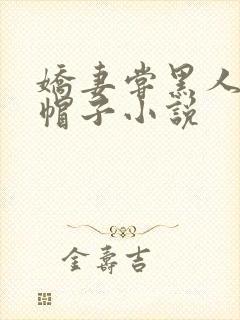 嬌妻嘗黑人
帽子小説
金壽吉